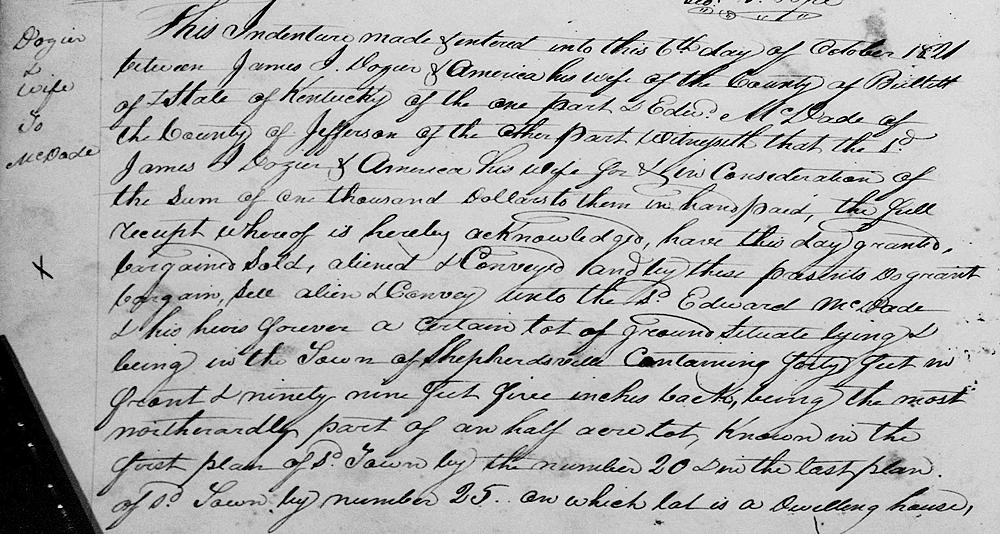 Dozier
&
Wife
To
McDade
This Indenture made & interd into this 6th day of October 1821
between James I Dozier & America his wife of the County of Bullitt
of & State of Kentucky of the one part & Edwd. McDade of
the County of Jefferson of the other part Witnesseth that the sd.
James I Dozier & America his wife for & in Consideration of
the sum of one thousand Dollars to them in hand paid, the full
receipt whereof is hereby acknowledged, have this day granted,
bargained Sold, aliened & Conveyed and by these presents Do grant
bargain, sell alien & Convey unto the sd. Edward McDade
& his heirs forever a certain lot of ground situate lying &
being in the Town of Shepherdsville Containing forty feet in
front & ninety nine feet five inches back, being the most
northerardly part of an half acre lot, Known in the
first plan of sd. Town by the number 20 & in the last plan
of sd. Town by number 25. on which lot is a Dwelling house,